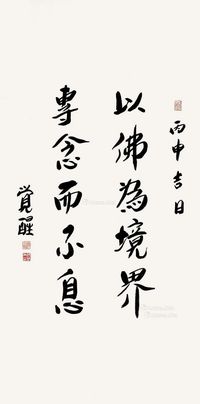 丙申吉日
以佛為境界
專念而不息
覺醒